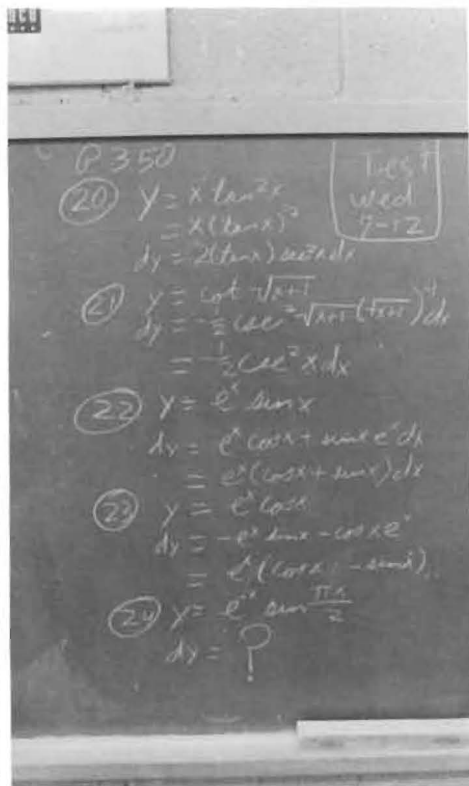 P 350
Tues
Wed
7-12
20 y = x tan²x
= x(tan x)²
dy = 2(tan x) sec²x dx
21 y = cot √(x+1)
dy = -½ csc² √(x+1) (√(x+1))⁻¹ dx
= -½ csc² x dx
22 y = eˣ sin x
dy = eˣ cos x + sin x eˣ dx
= eˣ(cos x + sin x) dx
23 y = eˣ cos x
dy = -eˣ sin x - cos x eˣ
= eˣ(cos x - sin x)
24 y = e⁻ˣ sin πx/2
dy = ?